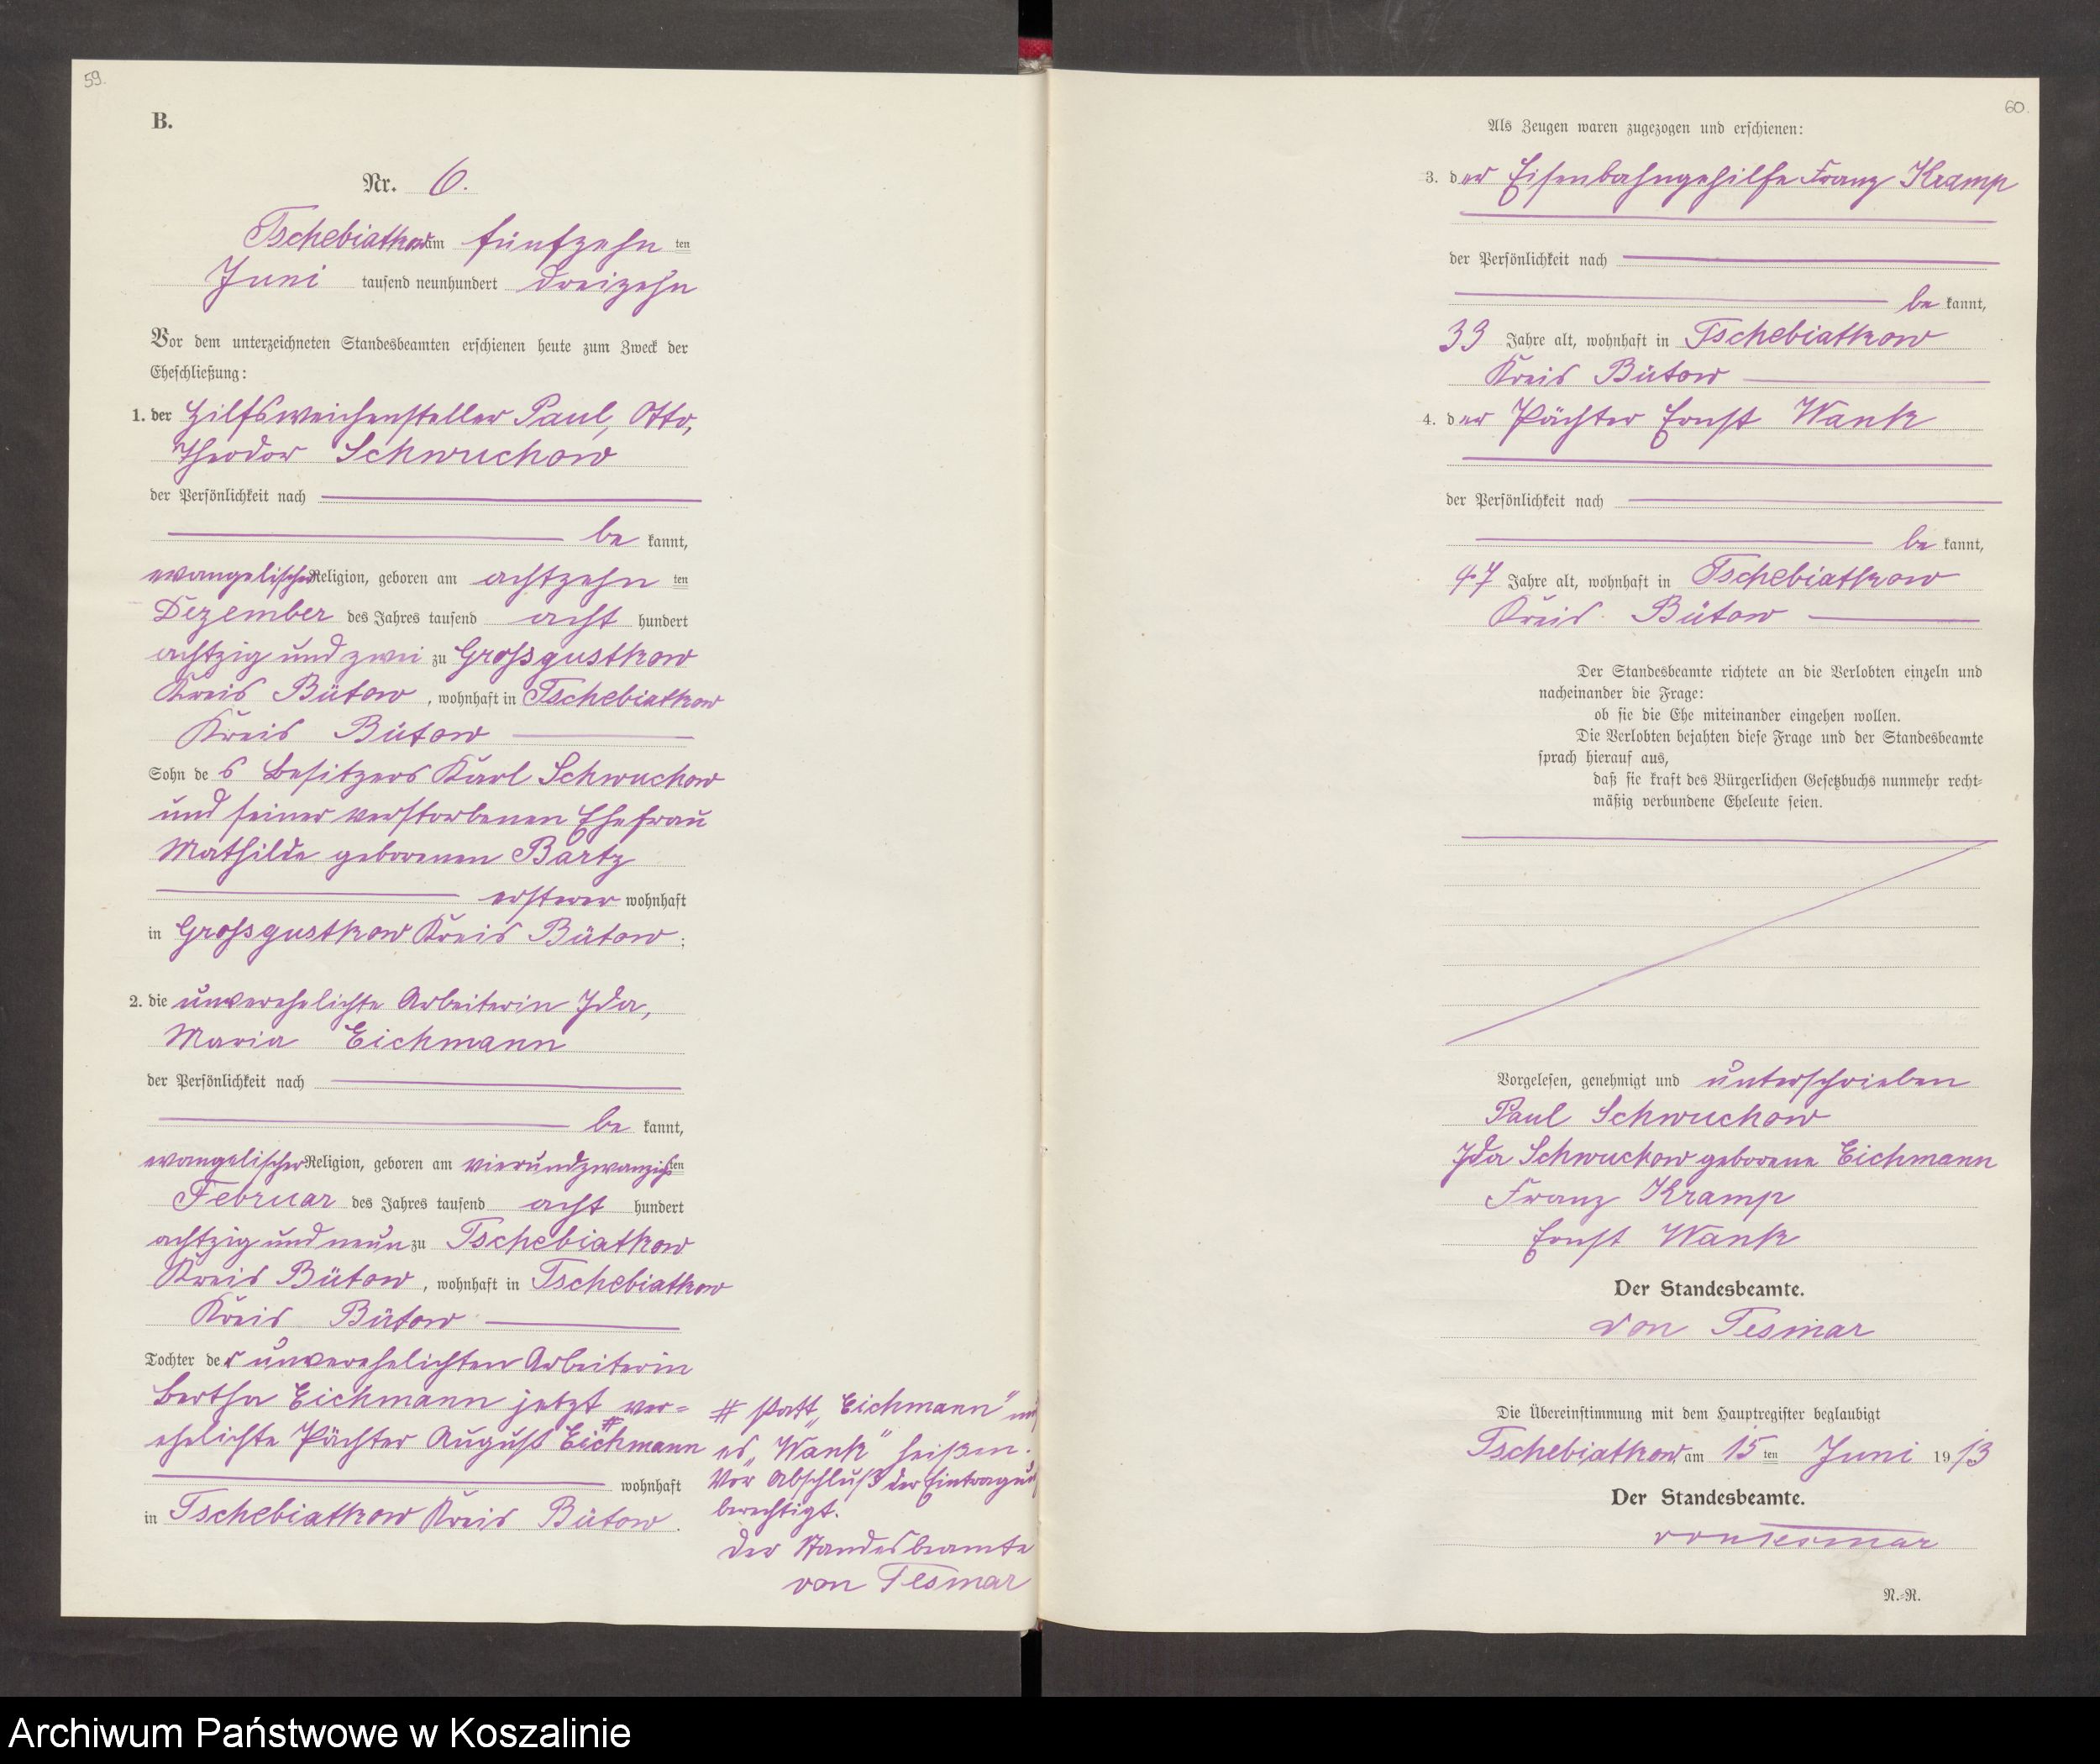 59.
B.
Nr. 6.
Tschebiatkow am fünfzehn ten
Juni tausend neunhundert dreizehn
Vor dem unterzeichneten Standesbeamten erschienen heute zum Zweck der
Eheschließung:
1. der Hilfsweichensteller Paul, Otto,
Theodor Schwuchow
der Persönlichkeit nach
be kannt,
evangelischer Religion, geboren am achtzehn ten
Dezember des Jahres tausend acht hundert
achtzig und zwei zu Grossgustkow
Kreis Bütow, wohnhaft in Tschebiatkow
Kreis Bütow
Sohn des Besitzers Karl Schwuchow
und seiner verstorbenen Ehefrau
Mathilde geborenen Bartz
ersterer wohnhaft
in Grossgustkow Kreis Bütow;
2. die unverehelichte Arbeiterin Ida,
Maria Eichmann
der Persönlichkeit nach
be kannt,
evangelischer Religion, geboren am vierundzwanzigsten
Februar des Jahres tausend acht hundert
achtzig und neun zu Tschebiatkow
Kreis Bütow, wohnhaft in Tschebiatkow
Kreis Bütow
Tochter der unverehelichten Arbeiterin
Bertha Eichmann jetzt ver=
ehelichte Pächter August Eichmann #
wohnhaft
in Tschebiatkow Kreis Bütow.
# statt „Eichmann"
es „Wank" heißen.
Vor Abschluß der Eintragun
berechtigt.
Der Standesbeamte
von Tesmar
60.
Als Zeugen waren zugezogen und erschienen:
3. der Eisenbahngehilfe Franz Kramp
der Persönlichkeit nach
be kannt,
33 Jahre alt, wohnhaft in Tschebiatkow
Kreis Bütow
4. der Pächter Ernst Wank
der Persönlichkeit nach
be kannt,
47 Jahre alt, wohnhaft in Tschebiatkow
Kreis Bütow
Der Standesbeamte richtete an die Verlobten einzeln und
nacheinander die Frage:
ob sie die Ehe miteinander eingehen wollen.
Die Verlobten bejahten diese Frage und der Standesbeamte
sprach hierauf aus,
daß sie kraft des Bürgerlichen Gesetzbuchs nunmehr recht-
mäßig verbundene Eheleute seien.
Vorgelesen, genehmigt und unterschrieben
Paul Schwuchow
Ida Schwuchow geborene Eichmann
Franz Kramp
Ernst Wank
Der Standesbeamte.
von Tesmar
Die Übereinstimmung mit dem Hauptregister beglaubigt
Tschebiatkow, am 15 ten Juni 19 13
Der Standesbeamte.
von Tesmar
N.-R.
Archiwum Państwowe w Koszalinie